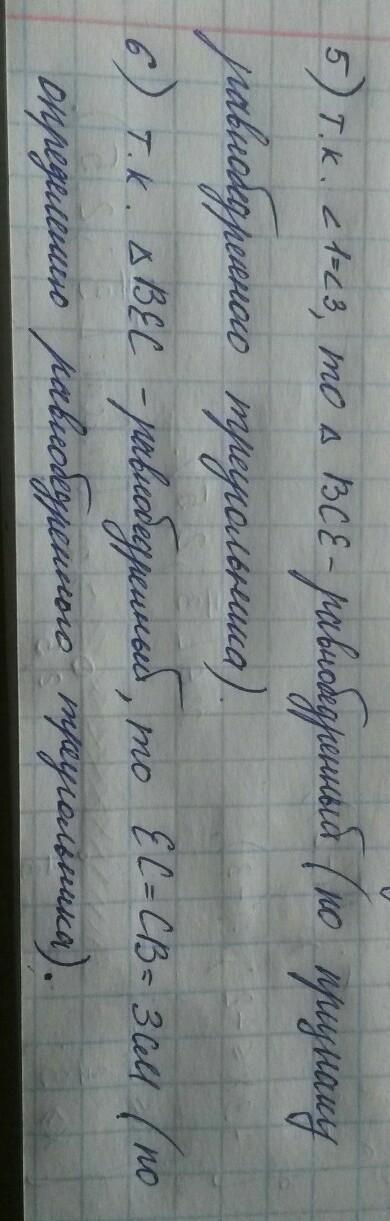 5) т.к. ∠1=∠3, то △ BCE - равнобедренный (по признаку
равнобедренного треугольника).
6) т.к. △ BEC - равнобедренный, то EC = CB = 3см (по
определению равнобедренного треугольника).